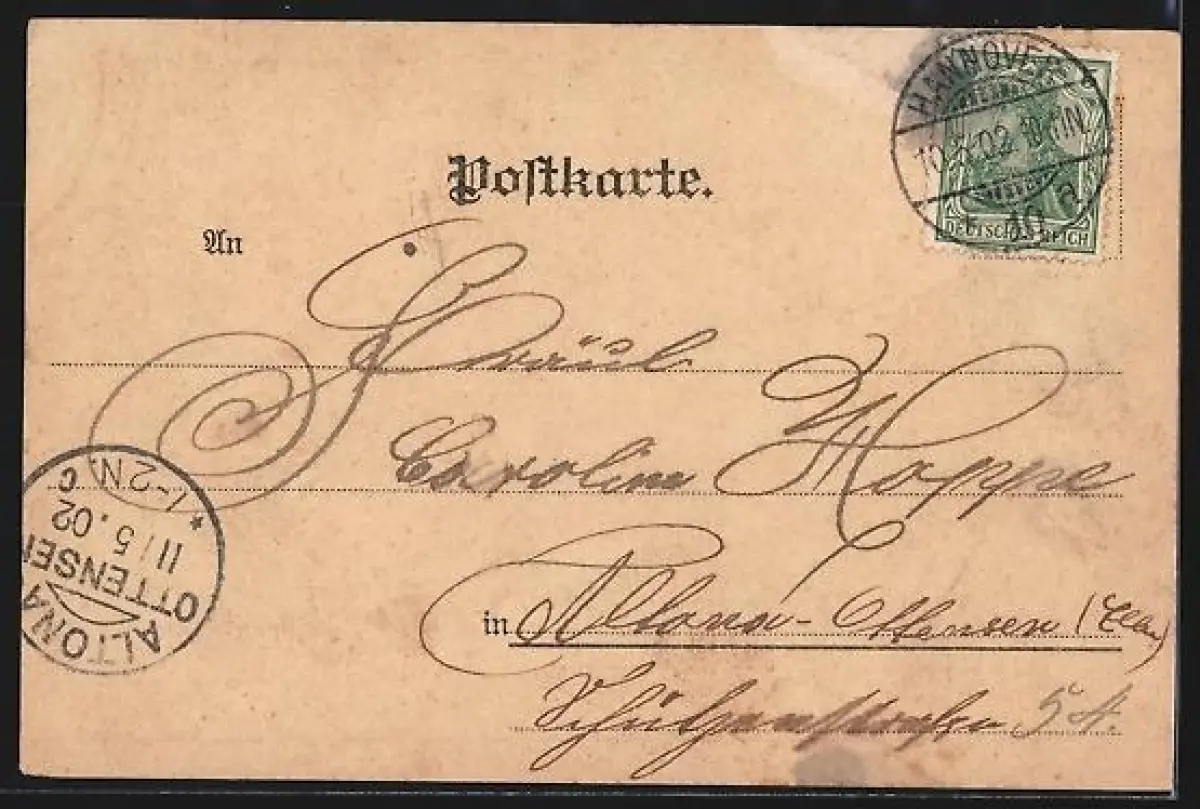 Postkarte.
HANNOVER
10.5.02
DEUTSCHES REICH
An
Fräul
Carolin Hoppe
in Altona-Ottensen (Elbe)
Schützenstraße 54.
ALTONA
OTTENSEN
11/5.02
1-2N
c